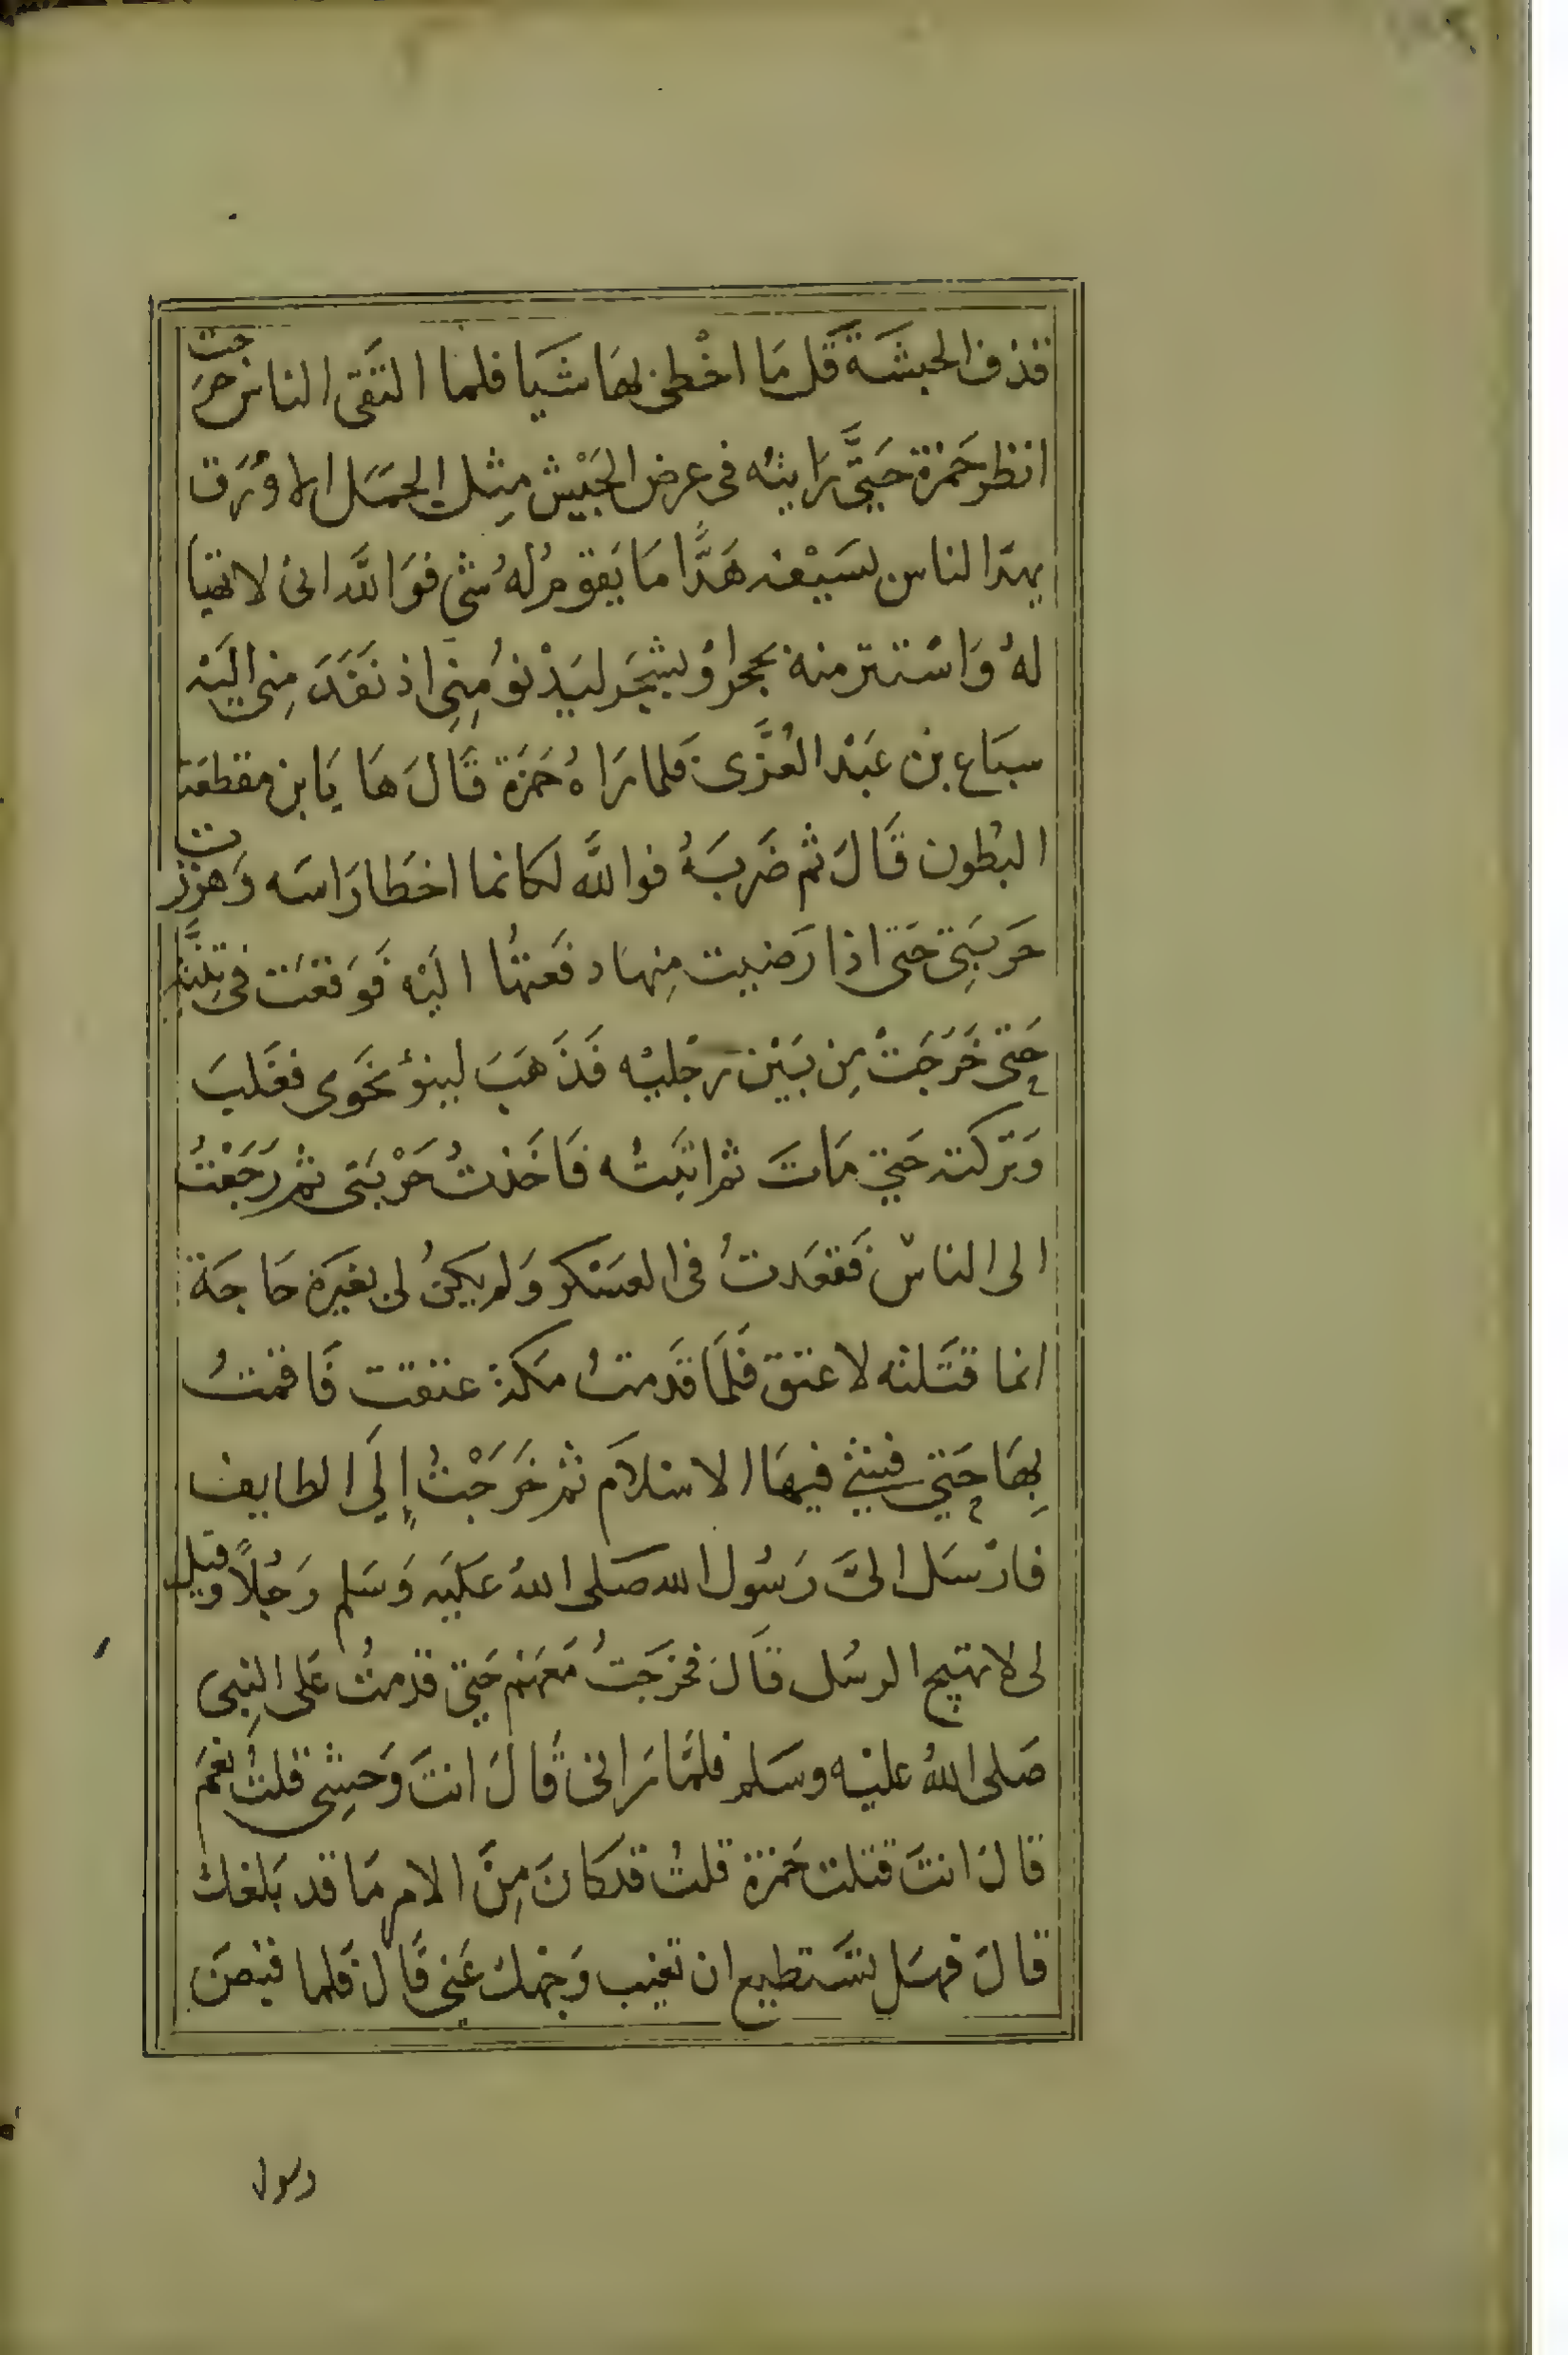 قذف الحبشة قل ما اخطى بها شيا فلما التقى الناس خرجت
انظر حمزة حتى رايته فى عرض الجيش مثل الجمل الاورق
يهد الناس بسيفه هدا ما يقوم له شى فوالله انى لاتهيا
له واستتر منه بحجر او بشجر ليدنو منى اذ تقدم منى اليه
سباع بن عبد العزى فلما راه حمزة قال ها يابن مقطعة
البطون قال ثم ضربه فوالله لكانما اخطا راسه وهززت
حربتى حتى اذا رضيت منها دفعتها اليه فوقعت فى ثنته
حتى خرجت من بين رجليه فذهب لينؤ نحوى فغلب
وتركته حتى مات ثم اتيته فاخذت حربتى ثم رجعت
الى الناس فقعدت فى العسكر ولم يكن لى بغيره حاجة
انما قتلته لاعتق فلما قدمت مكة عتقت فاقمت
بها حتى فشى فيها الاسلام ثم خرجت الى الطايف
فارسل الى رسول الله صلى الله عليه وسلم رجلا وقيل
لى لا تهيج الرسل قال فخرجت معهم حتى قدمت على النبى
صلى الله عليه وسلم فلما رانى قال انت وحشى قلت نعم
قال انت قتلت حمزة قلت قد كان من الامر ما قد بلغك
قال فهل تستطيع ان تغيب وجهك عنى قال فلما قبض
رسول